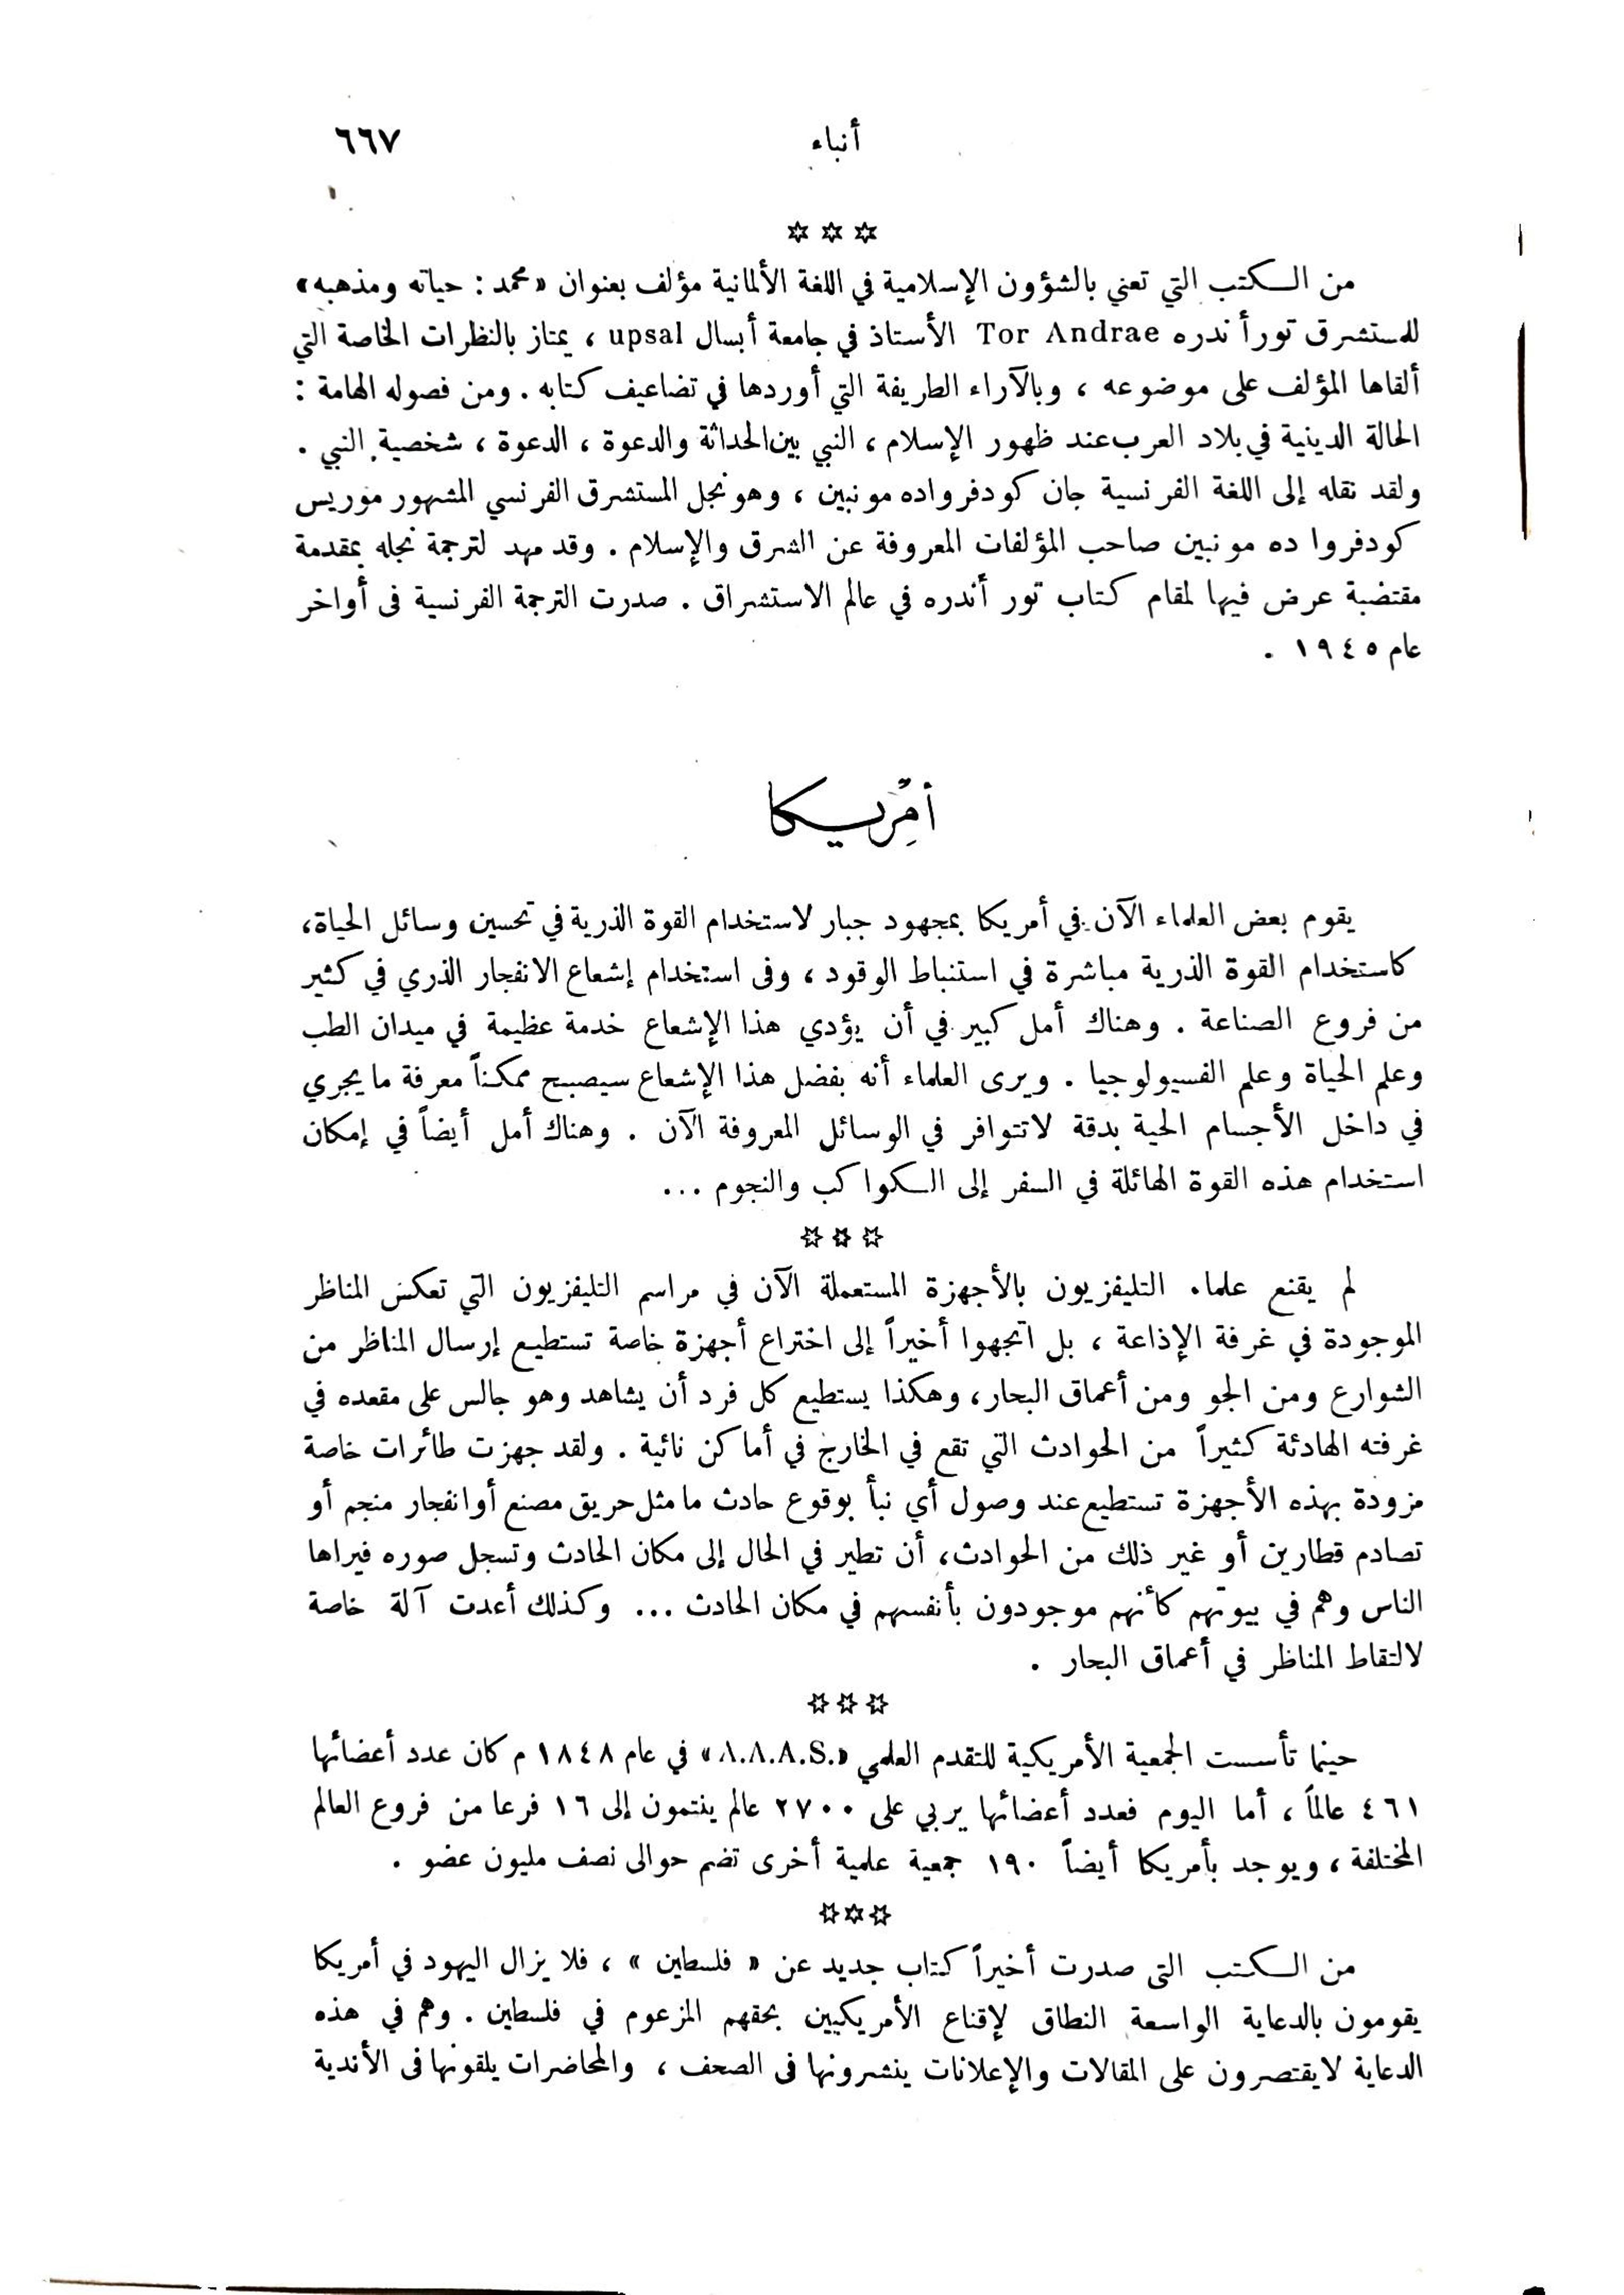 أنباء
٦٦٧
✡ ✡ ✡
من الكتب التي تعني بالشؤون الإسلامية في اللغة الألمانية مؤلف بعنوان «محمد : حياته ومذهبه»
للمستشرق تور أندره Tor Andrae الأستاذ في جامعة أبسال upsal ، يمتاز بالنظرات الخاصة التي
ألقاها المؤلف على موضوعه ، وبالآراء الطريفة التي أوردها في تضاعيف كتابه . ومن فصوله الهامة :
الحالة الدينية في بلاد العرب عند ظهور الإسلام ، النبي بين الحداثة والدعوة ، الدعوة ، شخصية النبي .
ولقد نقله إلى اللغة الفرنسية جان كودفرواده مونبين ، وهو نجل المستشرق الفرنسي المشهور موريس
كودفروا ده مونبين صاحب المؤلفات المعروفة عن الشرق والإسلام . وقد مهد لترجمة نجله بمقدمة
مقتضبة عرض فيها لمقام كتاب تور أندره في عالم الاستشراق . صدرت الترجمة الفرنسية فى أواخر
عام ١٩٤٥ .
أمريكا
يقوم بعض العلماء الآن في أمريكا بمجهود جبار لاستخدام القوة الذرية في تحسين وسائل الحياة،
كاستخدام القوة الذرية مباشرة في استنباط الوقود ، وفى استخدام إشعاع الانفجار الذري في كثير
من فروع الصناعة . وهناك أمل كبير في أن يؤدي هذا الإشعاع خدمة عظيمة في ميدان الطب
وعلم الحياة وعلم الفسيولوجيا . ويرى العلماء أنه بفضل هذا الإشعاع سيصبح ممكناً معرفة ما يجري
في داخل الأجسام الحية بدقة لا تتوافر في الوسائل المعروفة الآن . وهناك أمل أيضاً في إمكان
استخدام هذه القوة الهائلة في السفر إلى الكواكب والنجوم ...
✡ ✡ ✡
لم يقنع علماء التليفزيون بالأجهزة المستعملة الآن في مراسم التليفزيون التي تعكس المناظر
الموجودة في غرفة الإذاعة ، بل اتجهوا أخيراً إلى اختراع أجهزة خاصة تستطيع إرسال المناظر من
الشوارع ومن الجو ومن أعماق البحار، وهكذا يستطيع كل فرد أن يشاهد وهو جالس على مقعده في
غرفته الهادئة كثيراً من الحوادث التي تقع في الخارج في أماكن نائية . ولقد جهزت طائرات خاصة
مزودة بهذه الأجهزة تستطيع عند وصول أي نبأ بوقوع حادث ما مثل حريق مصنع أو انفجار منجم أو
تصادم قطارين أو غير ذلك من الحوادث، أن تطير في الحال إلى مكان الحادث وتسجل صوره فيراها
الناس وهم في بيوتهم كأنهم موجودون بأنفسهم في مكان الحادث ... وكذلك أعدت آلة خاصة
لالتقاط المناظر في أعماق البحار .
✡ ✡ ✡
حينما تأسست الجمعية الأمريكية للتقدم العلمي «A.A.A.S.» في عام ١٨٤٨ م كان عدد أعضائها
٤٦١ عالماً ، أما اليوم فعدد أعضائها يربي على ٢٧٠٠ عالم ينتمون إلى ١٦ فرعا من فروع العالم
المختلفة ، ويوجد بأمريكا أيضاً ١٩٠ جمعية علمية أخرى تضم حوالى نصف مليون عضو .
✡ ✡ ✡
من الكتب التى صدرت أخيراً كتاب جديد عن « فلسطين » ، فلا يزال اليهود في أمريكا
يقومون بالدعاية الواسعة النطاق لإقناع الأمريكيين بحقهم المزعوم في فلسطين . وهم في هذه
الدعاية لا يقتصرون على المقالات والإعلانات ينشرونها فى الصحف ، والمحاضرات يلقونها فى الأندية